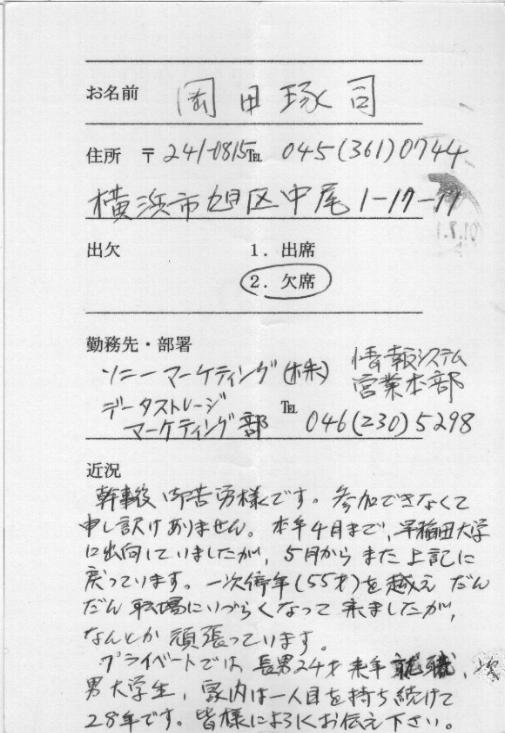 お名前 岡田琢司
住所 〒241-0815 TEL 045(361)0744
横浜市旭区中尾1-17-17
出欠 1. 出席
2. 欠席
勤務先・部署
ソニーマーケティング(株) 情報システム
営業本部
データストレージ
マーケティング部 TEL 046(230)5298
近況
幹事役 御苦労様です。参加できなくて
申し訳けありません。本年4月まで、早稲田大学
に出向していましたが、5月からまた上記に
戻っています。一次停年(55才)を越え だん
だん 職場にいづらくなって来ましたが、
なんとか 頑張っています。
プライベートでは 長男24才 来年 就職、次
男大学生、家内は一人目を持ち続けて
28年です。皆様によろしくお伝え下さい。